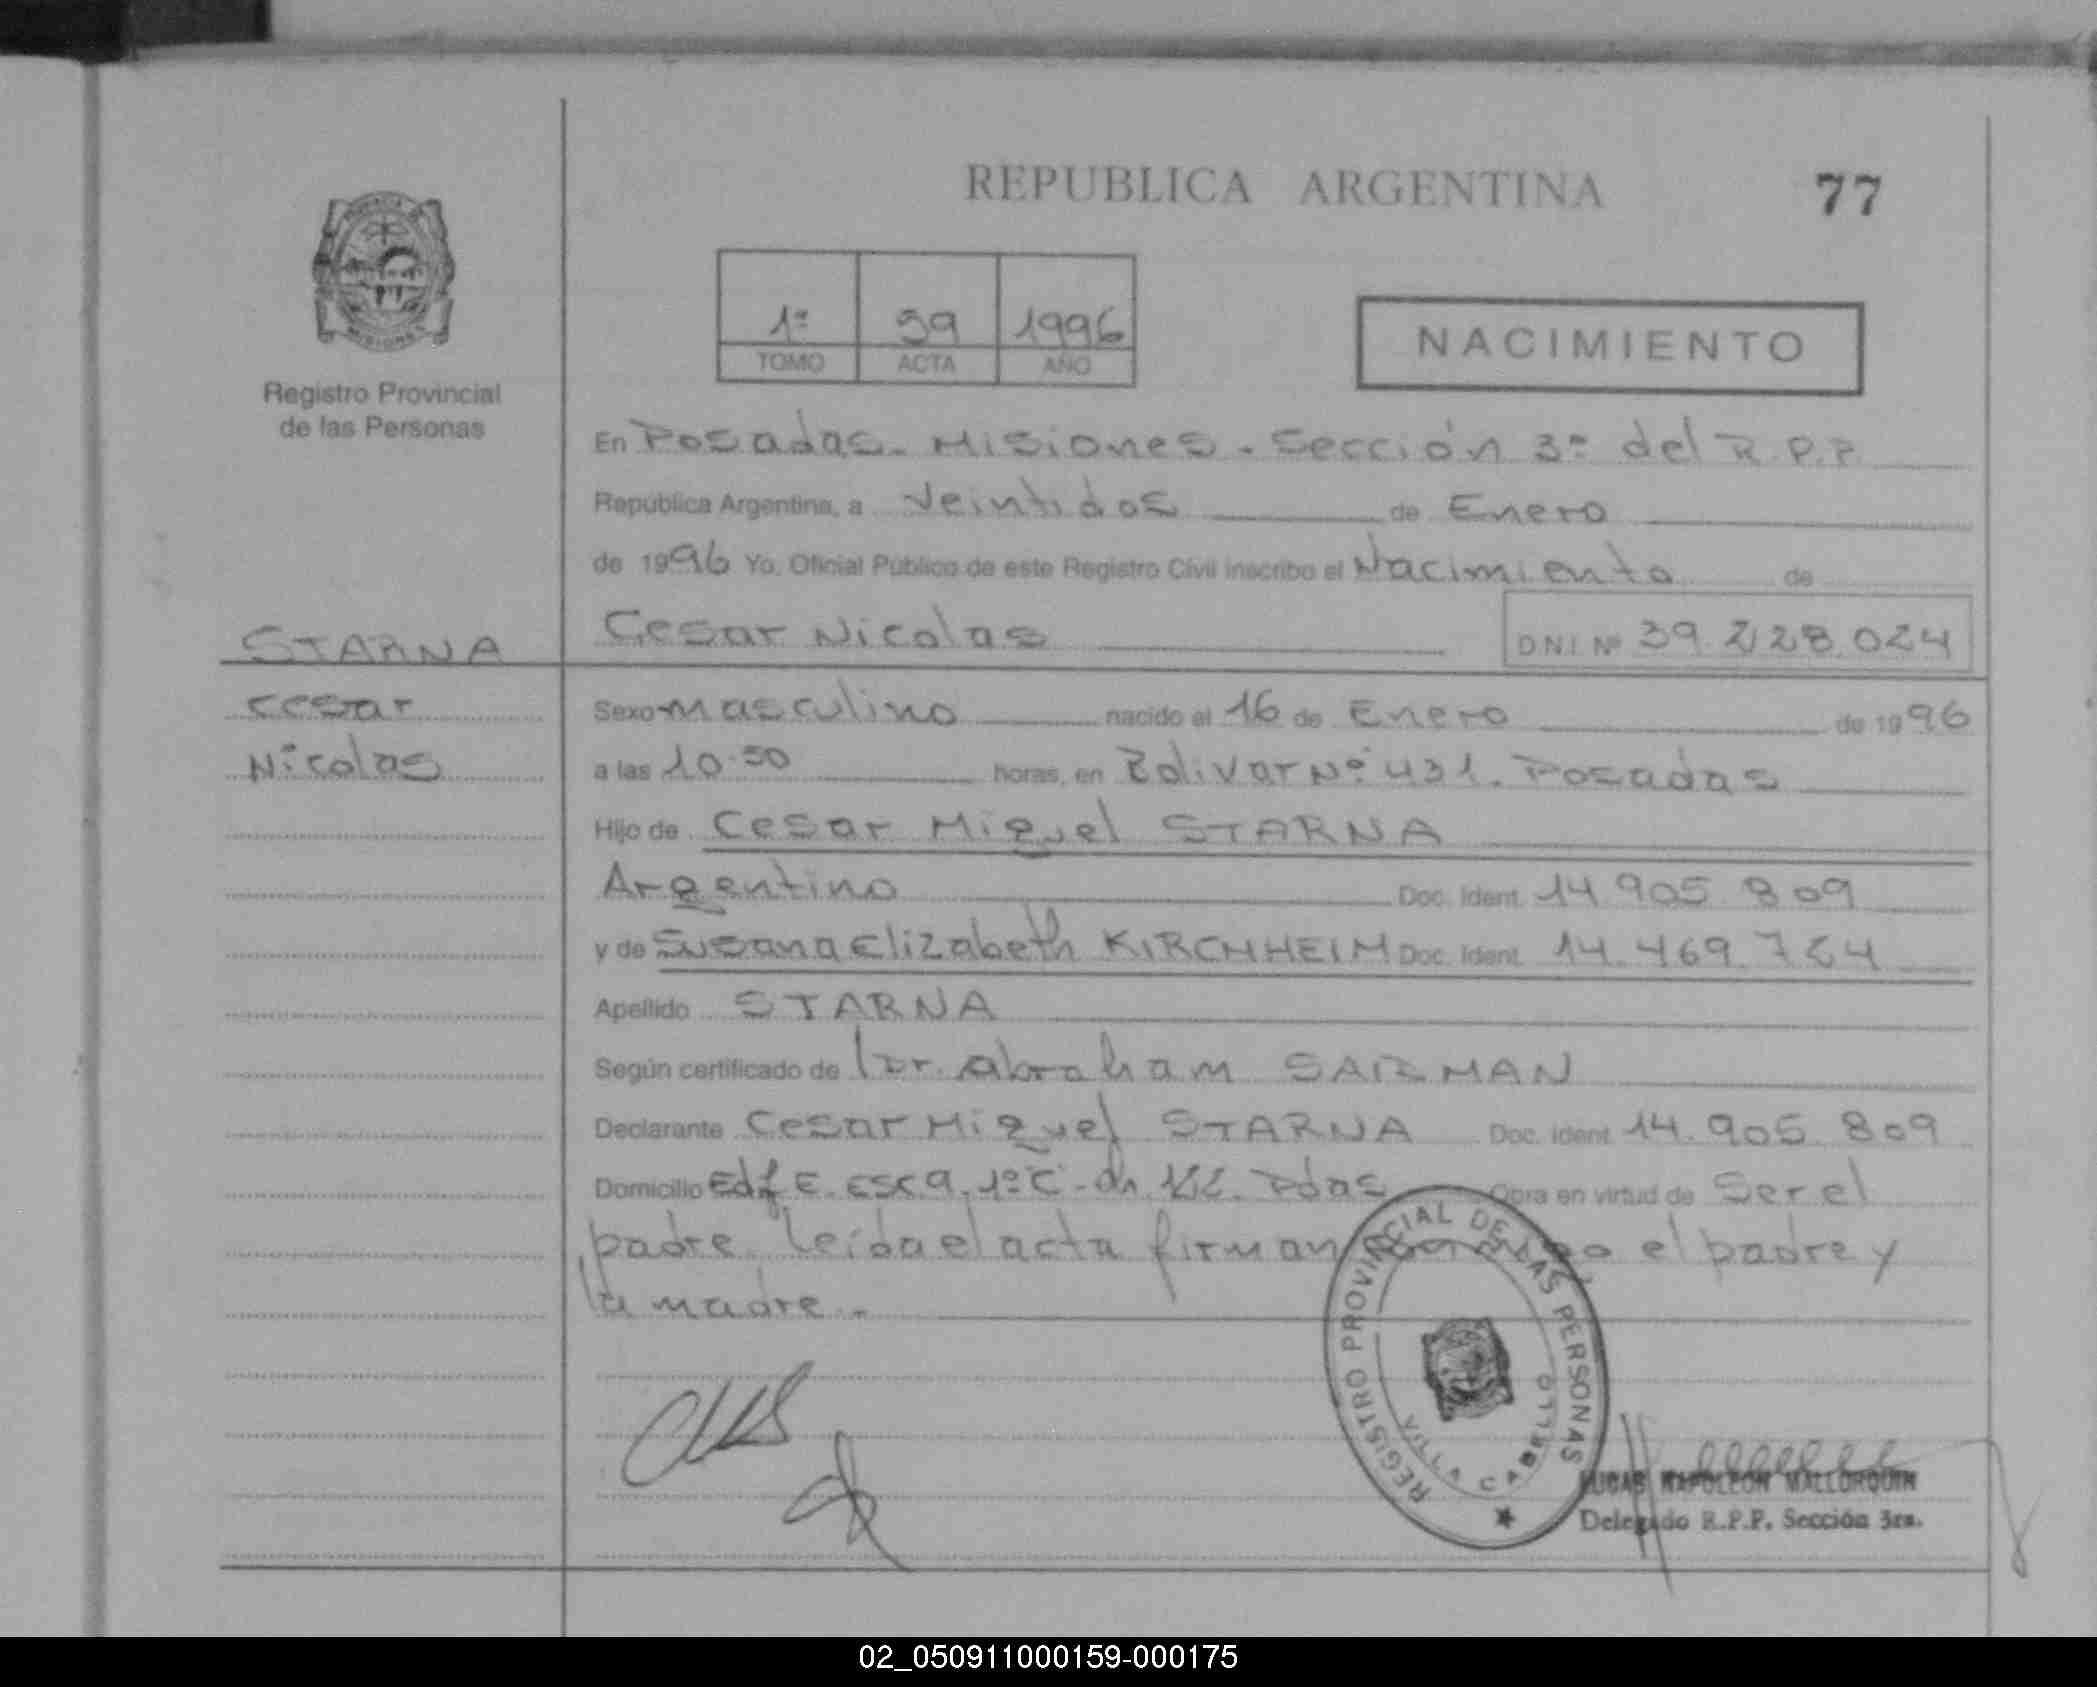 REPUBLICA ARGENTINA 77
1º 59 1996
TOMO ACTA AÑO
NACIMIENTO
Registro Provincial
de las Personas
En Posadas - Misiones - Sección 3º del R.P.P.
República Argentina, a Veintidos de Enero
de 1996 Yo, Oficial Público de este Registro Civil inscribo el Nacimiento de
STARNA
Cesar
Nicolas
Cesar Nicolas D.N.I. Nº 39.228.024
Sexo Masculino nacido el 16 de Enero de 1996
a las 10.50 horas, en Bolivar Nº 431. Posadas
Hijo de Cesar Miguel STARNA
Argentino Doc. Ident. 14.905.809
y de Susana Elizabeth KIRCHHEIM Doc. Ident. 14.469.724
Apellido STARNA
Según certificado de Dr. Abraham SAIZMAN
Declarante Cesar Miguel STARNA Doc. Ident. 14.905.809
Domicilio Edf E. ESC 9. 1º C - Ch. 122. Pdas Obra en virtud de Ser el
padre. Leída el acta firman el padre y
la madre.-
REGISTRO PROVINCIAL DE LAS PERSONAS
VILLA CABELLO
LUCAS NAPOLEON MALLORQUIN
Delegado R.P.P. Sección 3ra.
02_050911000159-000175